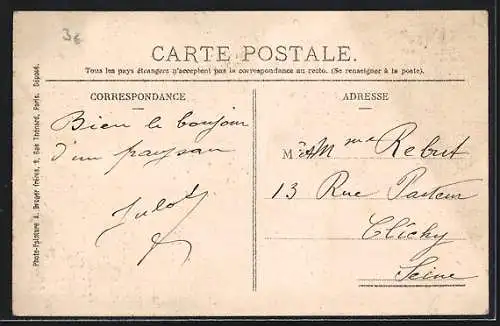 3€
CARTE POSTALE.
Tous les pays étrangers n'acceptent pas la correspondance au recto. (Se renseigner à la poste).
CORRESPONDANCE
Bien le bonjour
d'un paysan
Julot
ADRESSE
M et Mme Rebut
13 Rue Pasteur
Clichy
Seine
Photo-Peinture A. Breger frères, 9, Rue Thénard, Paris. Déposé.